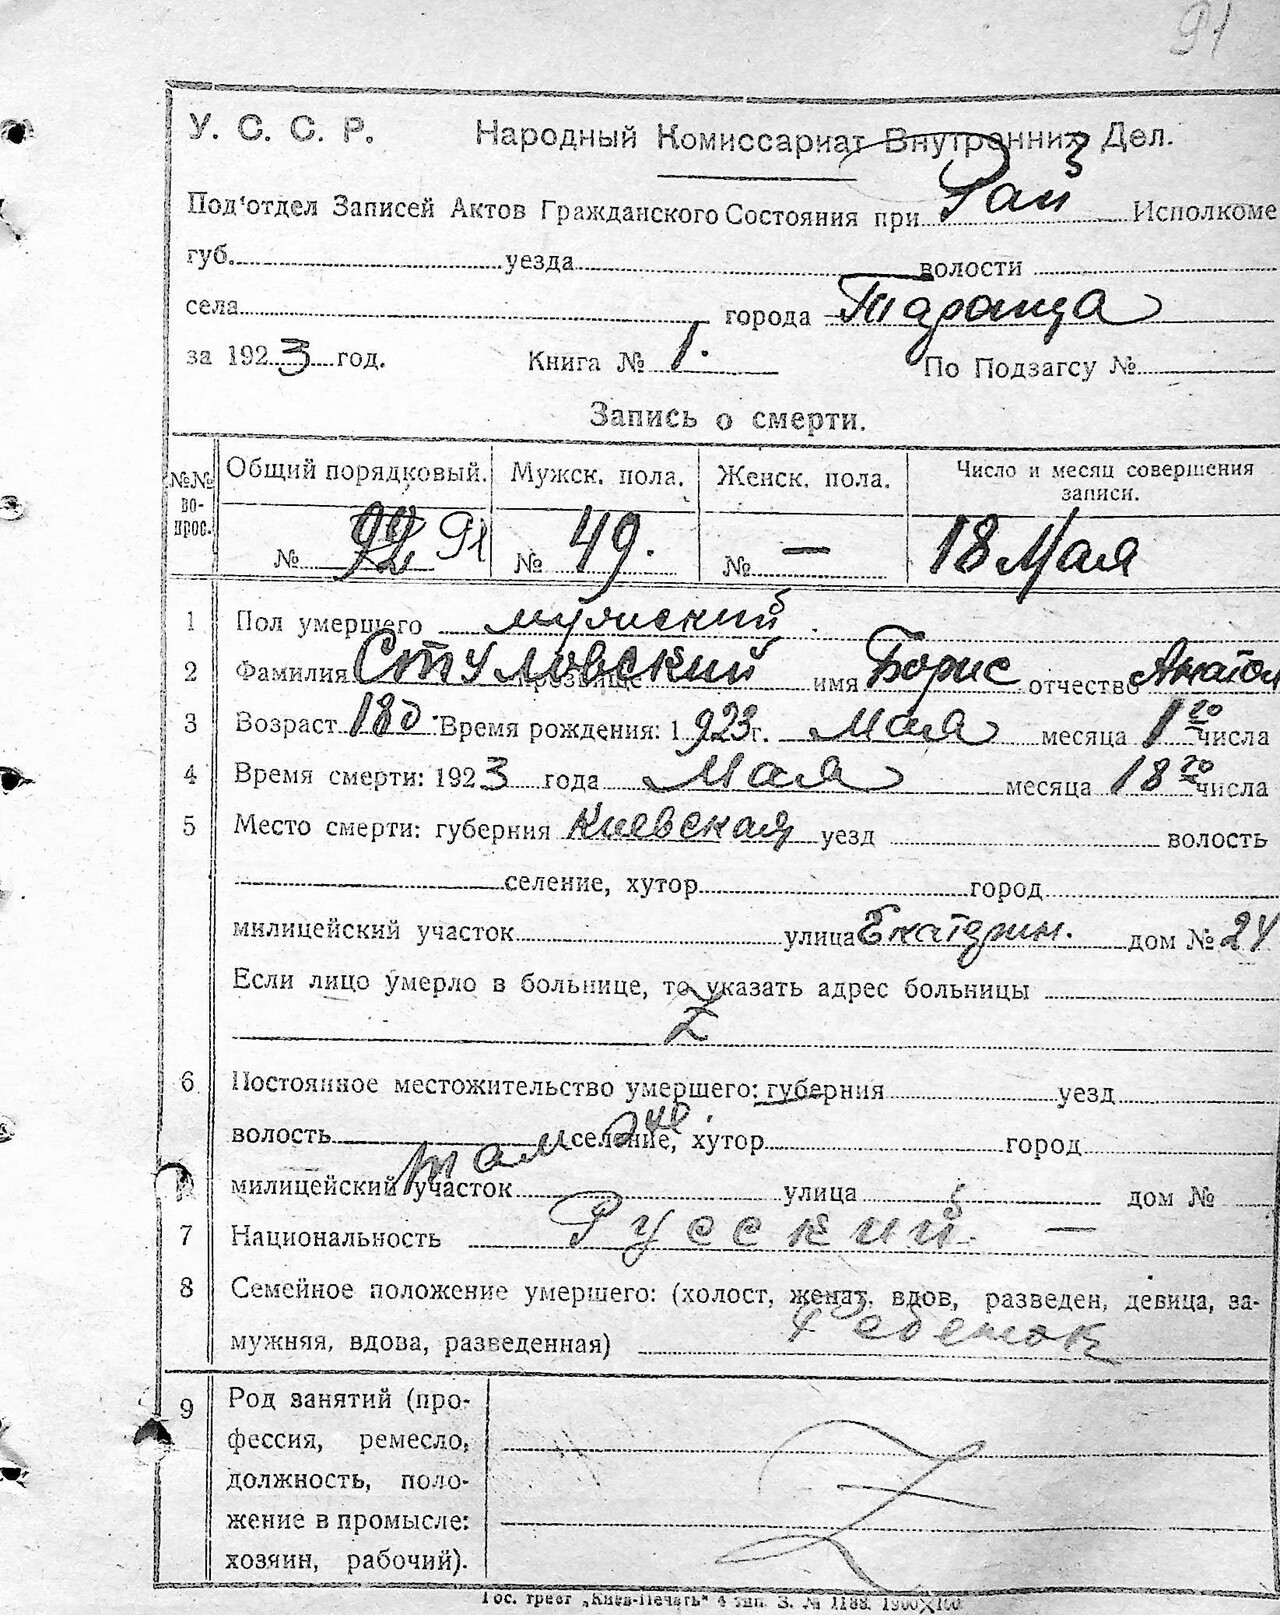 91
У. С. С. Р. Народный Комиссариат Внутренних Дел.
Под'отдел Записей Актов Гражданского Состояния при Рай Исполкоме
губ. уезда волости
села города Таращa
за 1923 год. Книга № 1. По Подзагсу №
Запись о смерти.
№№ вопрос. Общий порядковый. Мужск. пола. Женск. пола. Число и месяц совершения записи.
№ 92 91 № 49. № — 18 Мая
1 Пол умершего мужский.
2 Фамилия Стуловский прозвище имя Борис отчество Анатол
3 Возраст 18 д. Время рождения: 1923г. Мая месяца 1го числа
4 Время смерти: 1923 года Мая месяца 18го числа
5 Место смерти: губерния Киевская уезд волость
селение, хутор город
милицейский участок улица Екатерин. дом № 24
Если лицо умерло в больнице, то указать адрес больницы
Z
6 Постоянное местожительство умершего: губерния уезд
волость селение, хутор город
там же
милицейский участок улица дом №
7 Национальность Русский —
8 Семейное положение умершего: (холост, женат, вдов, разведен, девица, за-
мужняя, вдова, разведенная) ребенок
9 Род занятий (про-
фессия, ремесло,
должность, поло-
жение в промысле:
хозяин, рабочий).
Гос. трест „Киев-Печать" 4 тип. З. № 1188. 1900×100